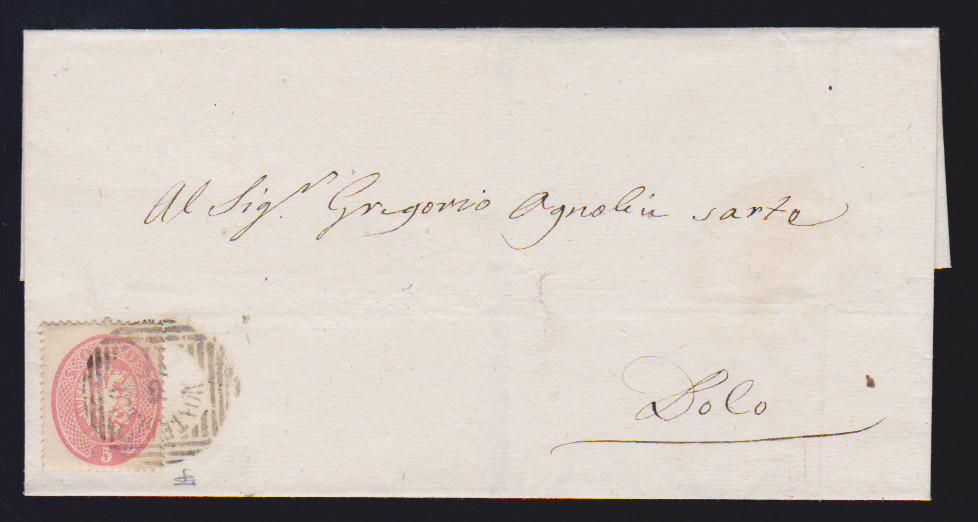 Al Sig.r Gregorio Agnolin sarto
Dolo
5